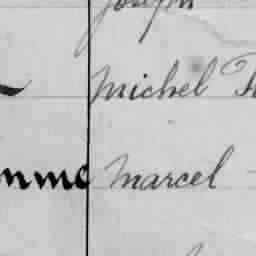 Joseph
Michel
Marcel